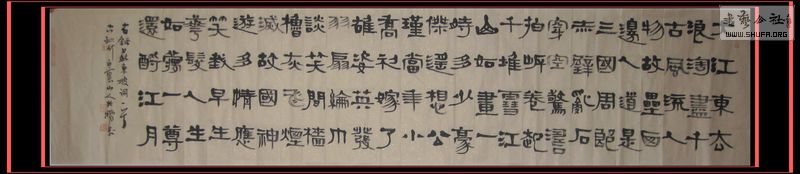 大江東去
浪淘盡千
古風流人
物故壘西
邊人道是
三國周郎
赤壁亂石
穿空驚濤
拍岸卷起
千堆雪江
山如畫一
時多少豪
傑遙想公
瑾當年小
喬初嫁了
雄姿英發
羽扇綸巾
談笑間檣
櫓灰飛煙
滅故國神
遊多情應
笑我早生
華髮人生
如夢一尊
還酹江月
右錄蘇東坡詞一首
書藝公社
WWW.SHUFA.ORG